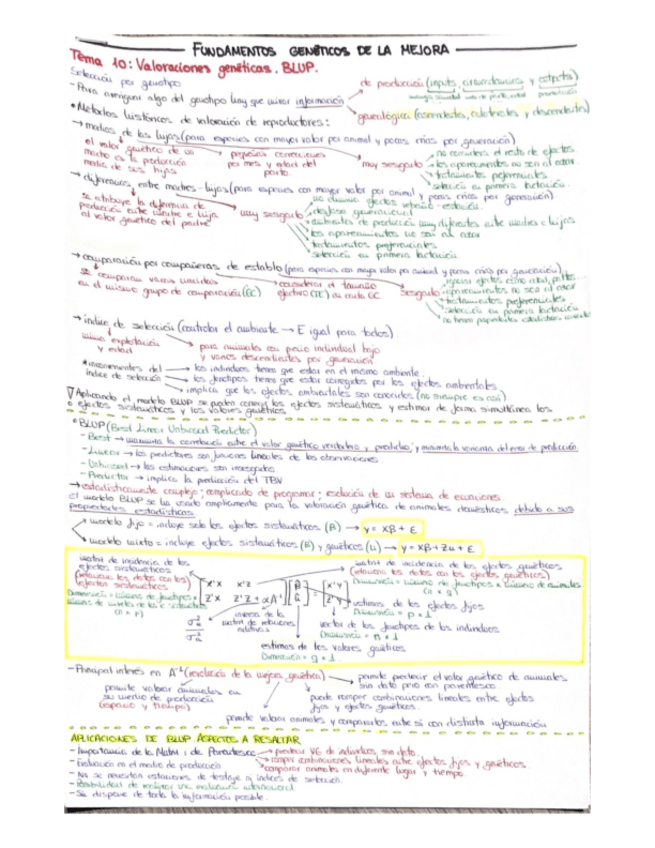 FUNDAMENTOS GENÉTICOS DE LA MEJORA
Tema 10: Valoraciones genéticas. BLUP.
Selección por genotipo
- Para averiguar algo del genotipo hay que mirar información
de producción (inputs, circunstancias y outputs)
genealógica (ascendentes, colaterales y descendientes)
• Métodos históricos de valoración de reproductores:
→ medias de las hijas (para especies con mayor valor por animal y pocas crías por generación)
el valor genético de un
macho es la producción
media de sus hijas
pequeñas correcciones
por mes y edad del
parto
muy sesgado
no considera el resto de efectos
los apareamientos no son al azar
tratamientos preferenciales
selección en primera lactación
→ diferencias entre madres-hijas (para especies con mayor valor por animal y pocas crías por generación)
se atribuye la diferencia de
producción entre madre e hija
al valor genético del padre
muy sesgado
no elimina efectos rebaño-estación
desfase generacional
ambientes de producción muy diferentes entre madres e hijas
los apareamientos no son al azar
tratamientos preferenciales
selección en primera lactación
→ comparación por compañeras de establo (para especies con mayor valor por animal y pocas crías por generación)
se comparan varias
en el mismo grupo de comparación (GC)
considerar el tamaño
efectivo (TE) en cada GC
Sesgado
ignora efectos como edad, partos...
apareamientos no son al azar
tratamientos preferenciales
selección en primera lactación
no tienen propiedades estadísticas
→ índice de selección (controlar el ambiente → E igual para todos)
misma explotación
y edad
para animales con precio individual bajo
y varios descendientes por generación
* inconvenientes del
índice de selección
los individuos tienen que estar en el mismo ambiente
los fenotipos tienen que estar corregidos por los efectos ambientales
implica que los efectos ambientales son conocidos (no siempre es así)
Aplicando el modelo BLUP se pueden corregir los efectos sistemáticos y estimar de forma simultánea los
efectos sistemáticos y los valores genéticos
• BLUP (Best Linear Unbiased Predictor)
- Best → maximiza la correlación entre el valor genético verdadero y predicho, y minimiza la varianza del error de predicción
- Linear → los predictores son funciones lineales de las observaciones
- Unbiased → las estimaciones son insesgadas
- Predictor → implica la predicción del TBV
→ estadísticamente complejo; complicado de programar; resolución de un sistema de ecuaciones.
El modelo BLUP se ha usado ampliamente para la valoración genética de animales domésticos debido a sus
propiedades estadísticas
modelo fijo = incluye solo los efectos sistemáticos (β) → y = Xβ + ε
modelo mixto = incluye efectos sistemáticos (β) y genéticos (u) → y = Xβ + Zu + ε
matriz de incidencia de los
efectos sistemáticos
(relaciona los datos con los
efectos sistemáticos)
(n x p)
X'X X'Z
Z'X Z'Z + αA⁻¹
X'Y
Z'Y
matriz de incidencia de los efectos genéticos
(relaciona los datos con los efectos genéticos)
Dimensión = número de fenotipos x número de animales
(n x g)
inversa de la
matriz de relaciones
aditivas
estimas de los efectos fijos
Dimensión = p x 1
vector de los fenotipos de los individuos
Dimensión = n x 1
estimas de los valores genéticos
Dimensión = g x 1
- Principal interés en A⁻¹ (revolución de la mejora genética)
permite valorar animales en
su medio de producción
(espacio y tiempo)
permite predecir el valor genético de animales
sin dato pero con parentesco
puede romper combinaciones lineales entre efectos
fijos y efectos genéticos
permite valorar animales y compararlos entre sí con distinta información
APLICACIONES DE BLUP. ASPECTOS A RESALTAR
- Importancia de la Matriz de Parentesco
predecir VG de individuos sin dato
romper combinaciones lineales entre efectos fijos y genéticos
comparar animales en diferente lugar y tiempo
- Evaluación en el medio de producción
- No se necesitan estaciones de testaje ni índices de selección
- Posibilidad de realizar una evaluación internacional
- Se dispone de toda la información posible.